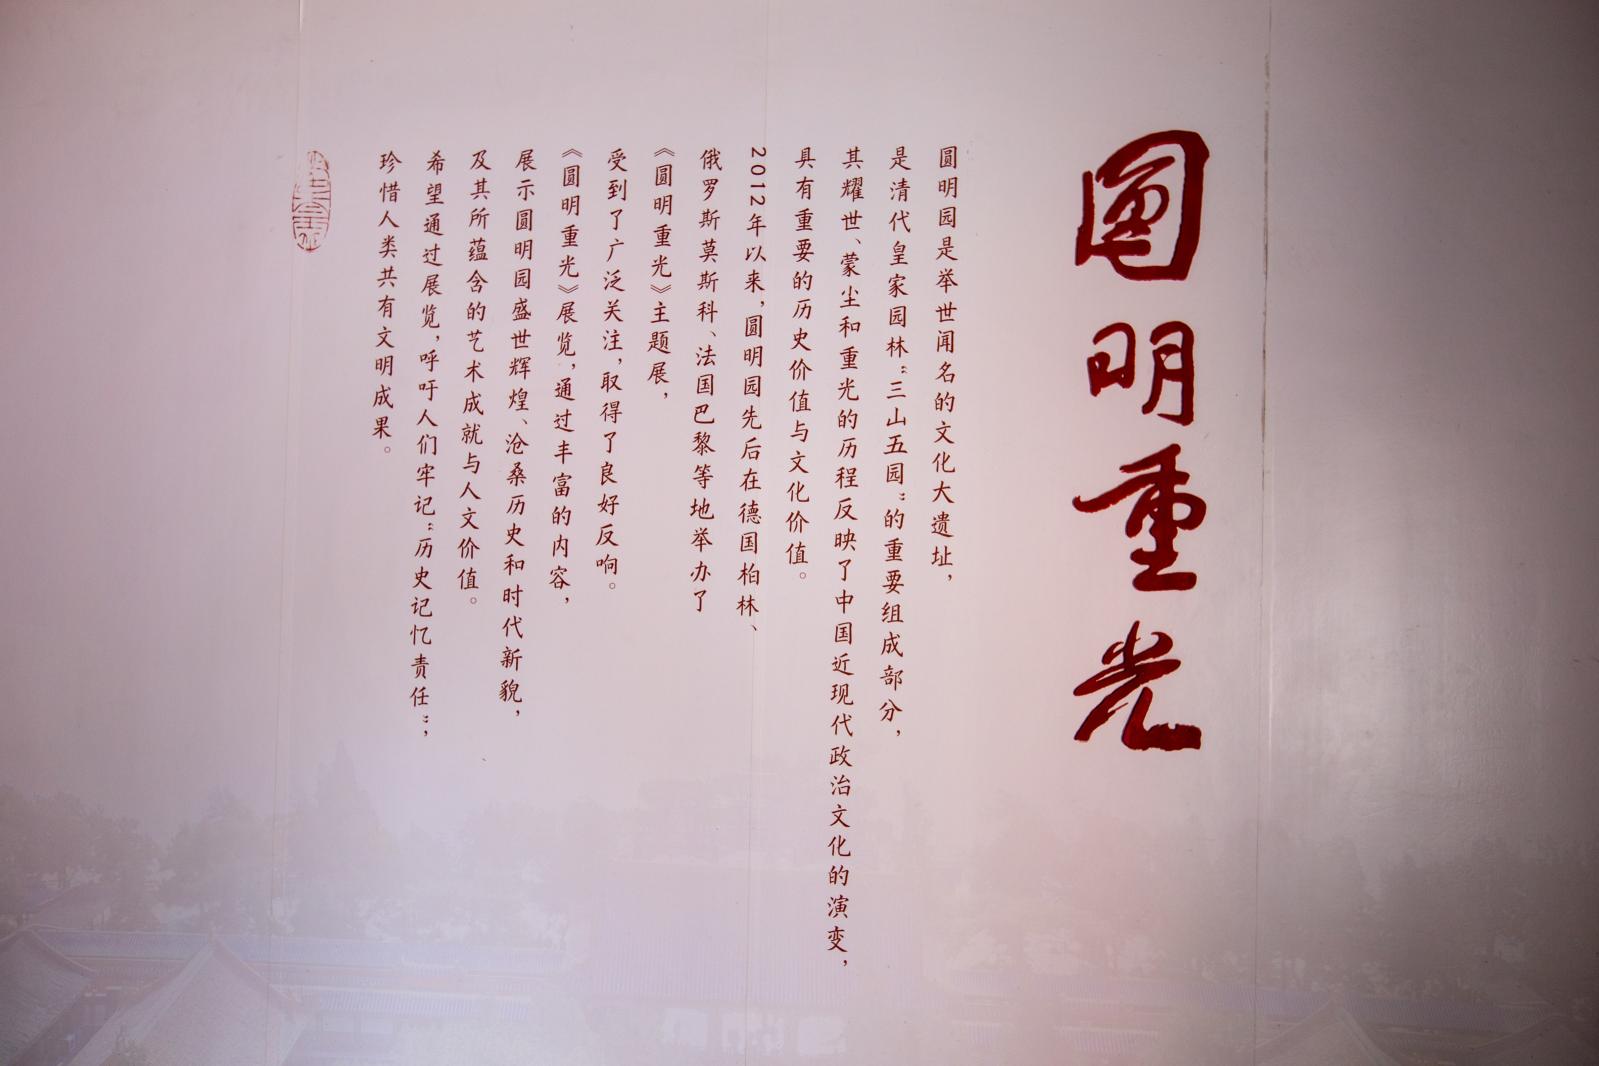 圆明重光
圆明园是举世闻名的文化大遗址，
是清代皇家园林“三山五园”的重要组成部分，
其耀世、蒙尘和重光的历程反映了中国近现代政治文化的演变，
具有重要的历史价值与文化价值。
2012年以来，圆明园先后在德国柏林、
俄罗斯莫斯科、法国巴黎等地举办了
《圆明重光》主题展，
受到了广泛关注，取得了良好反响。
《圆明重光》展览，通过丰富的内容，
展示圆明园盛世辉煌、沧桑历史和时代新貌，
及其所蕴含的艺术成就与人文价值。
希望通过展览，呼吁人们牢记“历史记忆责任”，
珍惜人类共有文明成果。